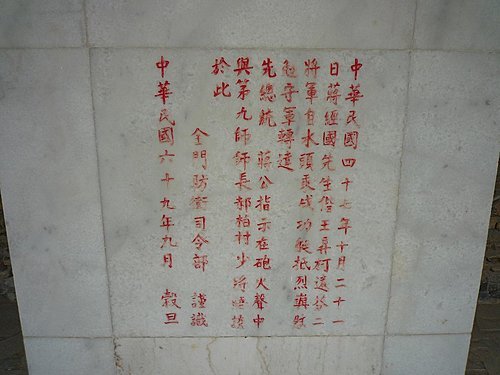 中華民國四十七年十月二十一
日蔣經國先生偕王昇柯遠芬二
將軍自水頭乘成功艇抵烈與敵
勉守軍轉達
先總統 蔣公指示在砲火聲中
與第九師師長郝柏村少將晤談
於此
金門防衛司令部 謹識
中華民國六十九年九月 穀旦